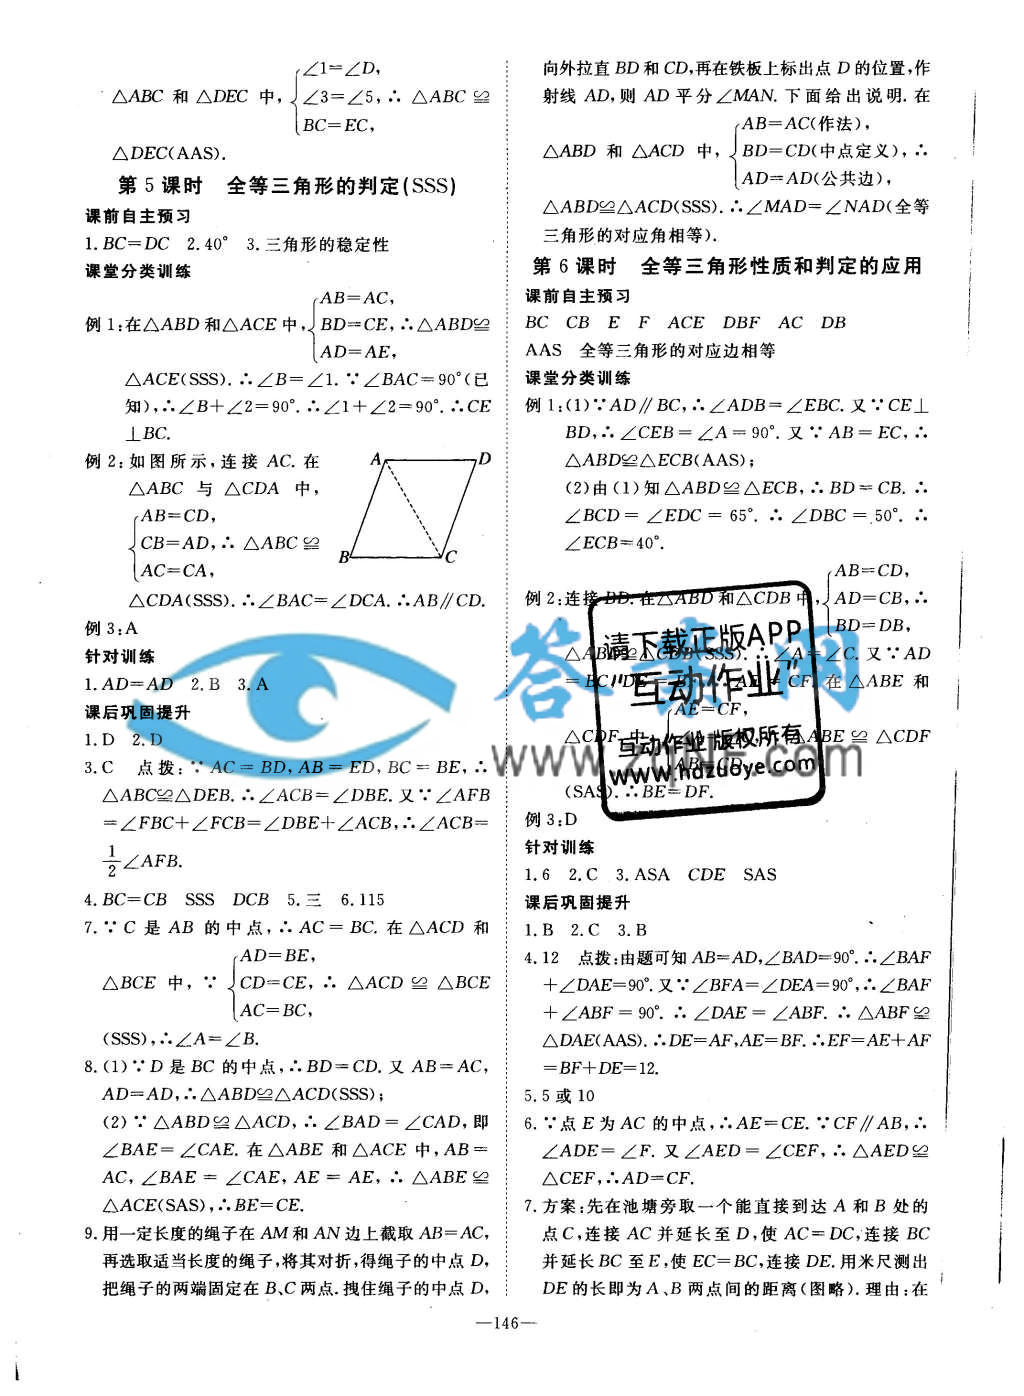 ∠1=∠D,
△ABC 和 △DEC 中, ∠3=∠5, ∴ △ABC ≌
BC=EC,
△DEC(AAS).
第 5 课时 全等三角形的判定(SSS)
课前自主预习
1. BC=DC 2. 40° 3. 三角形的稳定性
课堂分类训练
AB=AC,
例 1:在△ABD 和△ACE 中, BD=CE, ∴△ABD≌
AD=AE,
△ACE(SSS). ∴∠B=∠1. ∵∠BAC=90°(已
知), ∴∠B+∠2=90°. ∴∠1+∠2=90°. ∴CE
⊥BC.
例 2:如图所示,连接 AC. 在
△ABC 与 △CDA 中,
AB=CD,
CB=AD, ∴ △ABC ≌
AC=CA,
A D
B C
△CDA(SSS). ∴∠BAC=∠DCA. ∴AB∥CD.
例 3:A
针对训练
1. AD=AD 2. B 3. A
课后巩固提升
1. D 2. D
3. C 点拨: ∵ AC=BD, AB=ED, BC=BE, ∴
△ABC≌△DEB. ∴∠ACB=∠DBE. 又∵∠AFB
=∠FBC+∠FCB=∠DBE+∠ACB, ∴∠ACB=
1/2∠AFB.
4. BC=CB SSS DCB 5. 三 6. 115
7. ∵ C 是 AB 的中点, ∴ AC=BC. 在△ACD 和
AD=BE,
△BCE 中, ∵ CD=CE, ∴ △ACD ≌ △BCE
AC=BC,
(SSS), ∴∠A=∠B.
8. (1) ∵ D 是 BC 的中点, ∴BD=CD. 又 AB=AC,
AD=AD, ∴△ABD≌△ACD(SSS);
(2) ∵ △ABD≌△ACD, ∴ ∠BAD=∠CAD, 即
∠BAE=∠CAE. 在△ABE 和△ACE 中, AB=
AC, ∠BAE=∠CAE, AE=AE, ∴ △ABE≌
△ACE(SAS), ∴BE=CE.
9. 用一定长度的绳子在 AM 和 AN 边上截取 AB=AC,
再选取适当长度的绳子,将其对折,得绳子的中点 D,
把绳子的两端固定在 B、C 两点. 拽住绳子的中点 D,
向外拉直 BD 和 CD,再在铁板上标出点 D 的位置,作
射线 AD,则 AD 平分∠MAN. 下面给出说明. 在
AB=AC(作法),
△ABD 和 △ACD 中, BD=CD(中点定义), ∴
AD=AD(公共边),
△ABD≌△ACD(SSS). ∴∠MAD=∠NAD(全等
三角形的对应角相等).
第 6 课时 全等三角形性质和判定的应用
课前自主预习
BC CB E F ACE DBF AC DB
AAS 全等三角形的对应边相等
课堂分类训练
例 1:(1)∵AD∥BC, ∴∠ADB=∠EBC. 又∵CE⊥
BD, ∴∠CEB=∠A=90°. 又∵AB=EC, ∴
△ABD≌△ECB(AAS);
(2)由(1)知△ABD≌△ECB, ∴BD=CB. ∴
∠BCD=∠EDC=65°. ∴∠DBC=50°. ∴
∠ECB=40°.
AB=CD,
例 2:连接 BD. 在△ABD 和△CDB 中, AD=CB, ∴
BD=DB,
△ABD≌△CDB(SSS). ∴∠A=∠C. 又∵AD
CF. 在 △ABE 和
AE=CF,
△CDF 中, △ABE ≌ △CDF
AB=CD,
(SAS). ∴BE=DF.
例 3:D
针对训练
1. 6 2. C 3. ASA CDE SAS
课后巩固提升
1. B 2. C 3. B
4. 12 点拨:由题可知 AB=AD, ∠BAD=90°. ∴∠BAF
+∠DAE=90°. 又∵∠BFA=∠DEA=90°, ∴∠BAF
+∠ABF=90°. ∴∠DAE=∠ABF. ∴△ABF≌
△DAE(AAS). ∴DE=AF, AE=BF. ∴EF=AE+AF
=BF+DE=12.
5. 5 或 10
6. ∵点 E 为 AC 的中点, ∴AE=CE. ∵CF∥AB, ∴
∠ADE=∠F. 又∠AED=∠CEF, ∴△AED≌
△CEF, ∴AD=CF.
7. 方案:先在池塘旁取一个能直接到达 A 和 B 处的
点 C,连接 AC 并延长至 D,使 AC=DC,连接 BC
并延长 BC 至 E,使 EC=BC,连接 DE. 用米尺测出
DE 的长即为 A、B 两点间的距离(图略). 理由:在
请下载正版APP
“互动作业”
互动作业 版权所有
www.hdzuoye.com
答案网
—146—